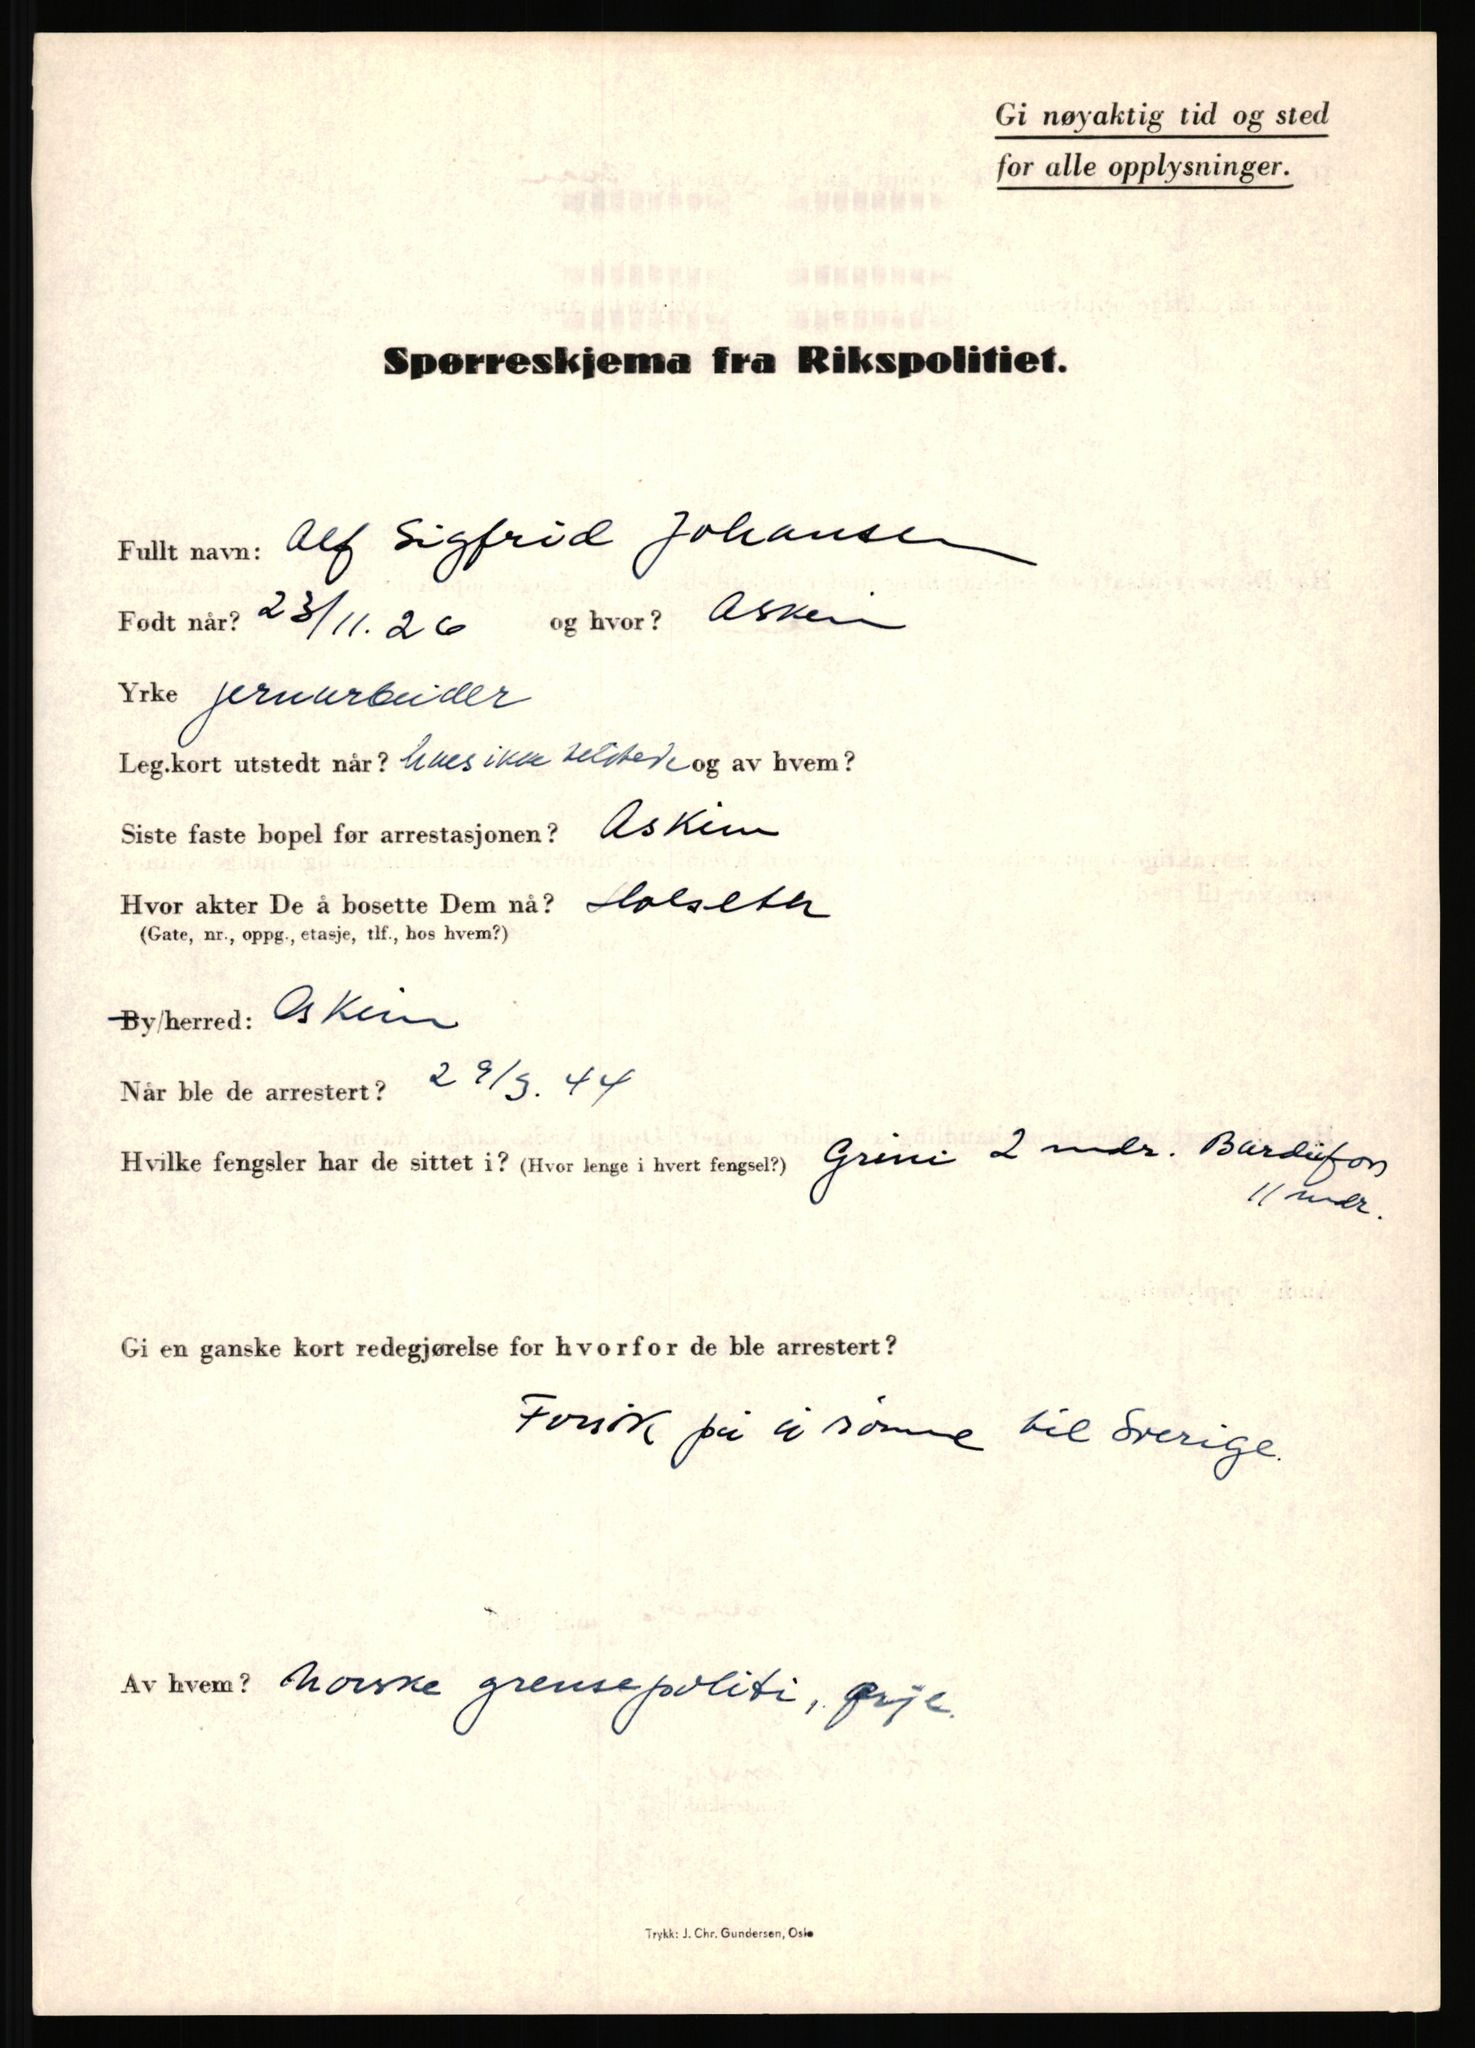 Gi nøyaktig tid og sted
for alle opplysninger.
Spørreskjema fra Rikspolitiet.
Fullt navn: Alf Sigfrid Johansen
Født når? 23/11.26 og hvor? Askim
Yrke jernarbeider
Leg.kort utstedt når? haes ikke tilstede og av hvem?
Siste faste bopel før arrestasjonen? Askim
Hvor akter De å bosette Dem nå? Holseter
(Gate, nr., oppg., etasje, tlf., hos hvem?)
By/herred: Askim
Når ble de arrestert? 29/3.44
Hvilke fengsler har de sittet i? (Hvor lenge i hvert fengsel?) Grini 2 mdr. Bardufos
11 mdr.
Gi en ganske kort redegjørelse for hvorfor de ble arrestert?
Forsøk på å rømme til Sverige.
Av hvem? Norske grensepoliti, Ørje.
Trykk: J. Chr. Gundersen, Oslo